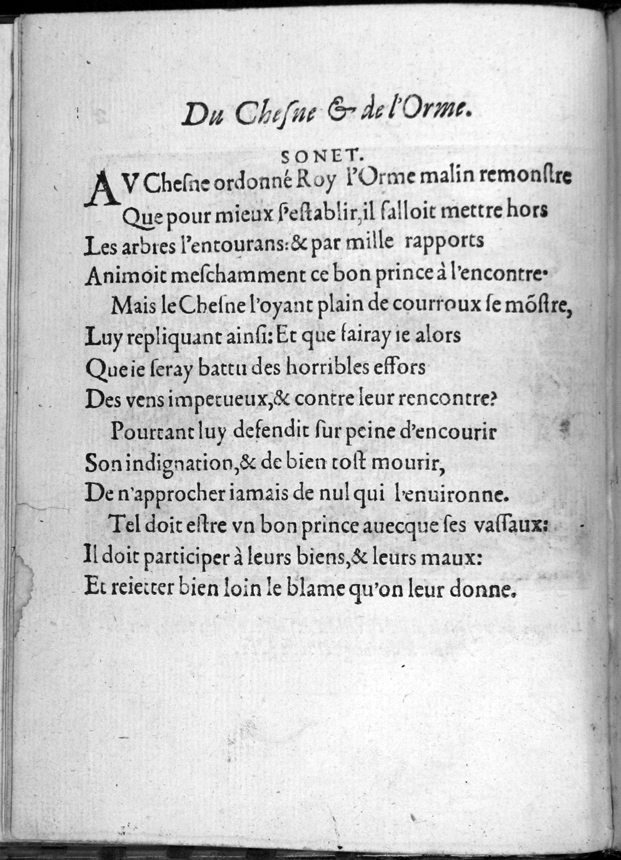 Du Cheſne & de l'Orme.
SONET.
AV Cheſne ordonné Roy l'Orme malin remonſtre
Que pour mieux ſ'eſtablir,il falloit mettre hors
Les arbres l'entourans:& par mille rapports
Animoit meſchamment ce bon prince à l'encontre.
Mais le Cheſne l'oyant plain de courroux ſe mõſtre,
Luy repliquant ainſi: Et que fairay ie alors
Que ie ſeray battu des horribles effors
Des vens impetueux,& contre leur rencontre?
Pourtant luy defendit ſur peine d'encourir
Son indignation,& de bien toſt mourir,
De n'approcher iamais de nul qui l'enuironne.
Tel doit eſtre vn bon prince auecque ſes vaſſaux:
Il doit participer à leurs biens,& leurs maux:
Et reietter bien loin le blame qu'on leur donne.